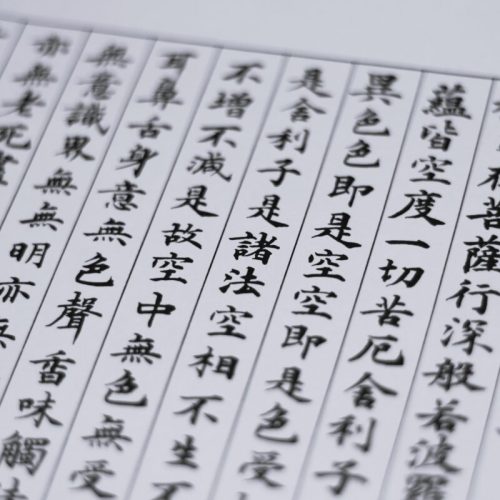 在菩薩行深般若波羅
蘊皆空度一切苦厄舍利子
異色色即是空空即是色受
是舍利子是諸法空相不生不
不增不減是故空中無色無受
耳鼻舌身意無色聲香味觸法
無意識界無無明亦無
亦無老死盡